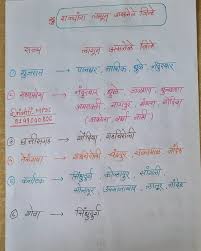 राज्यांना लागून असलेले जिल्हे
राज्य लागून असलेले जिल्हे
① गुजरात → पालघर, नाशिक, धुळे, नंदुरबार
② मध्यप्रदेश → नंदुरबार, धुळे, जळगाव, बुलढाणा
अमरावती, नागपूर, भंडारा, गोंदिया
③ छत्तीसगड → गोंदिया, गडचिरोली
④ तेलंगणा → गडचिरोली, चंद्रपूर, यवतमाळ, नांदेड
⑤ कर्नाटक → सिंधुदुर्ग, कोल्हापूर, सांगली
सोलापूर, उस्मानाबाद, लातूर, नांदेड
⑥ गोवा → सिंधुदुर्ग